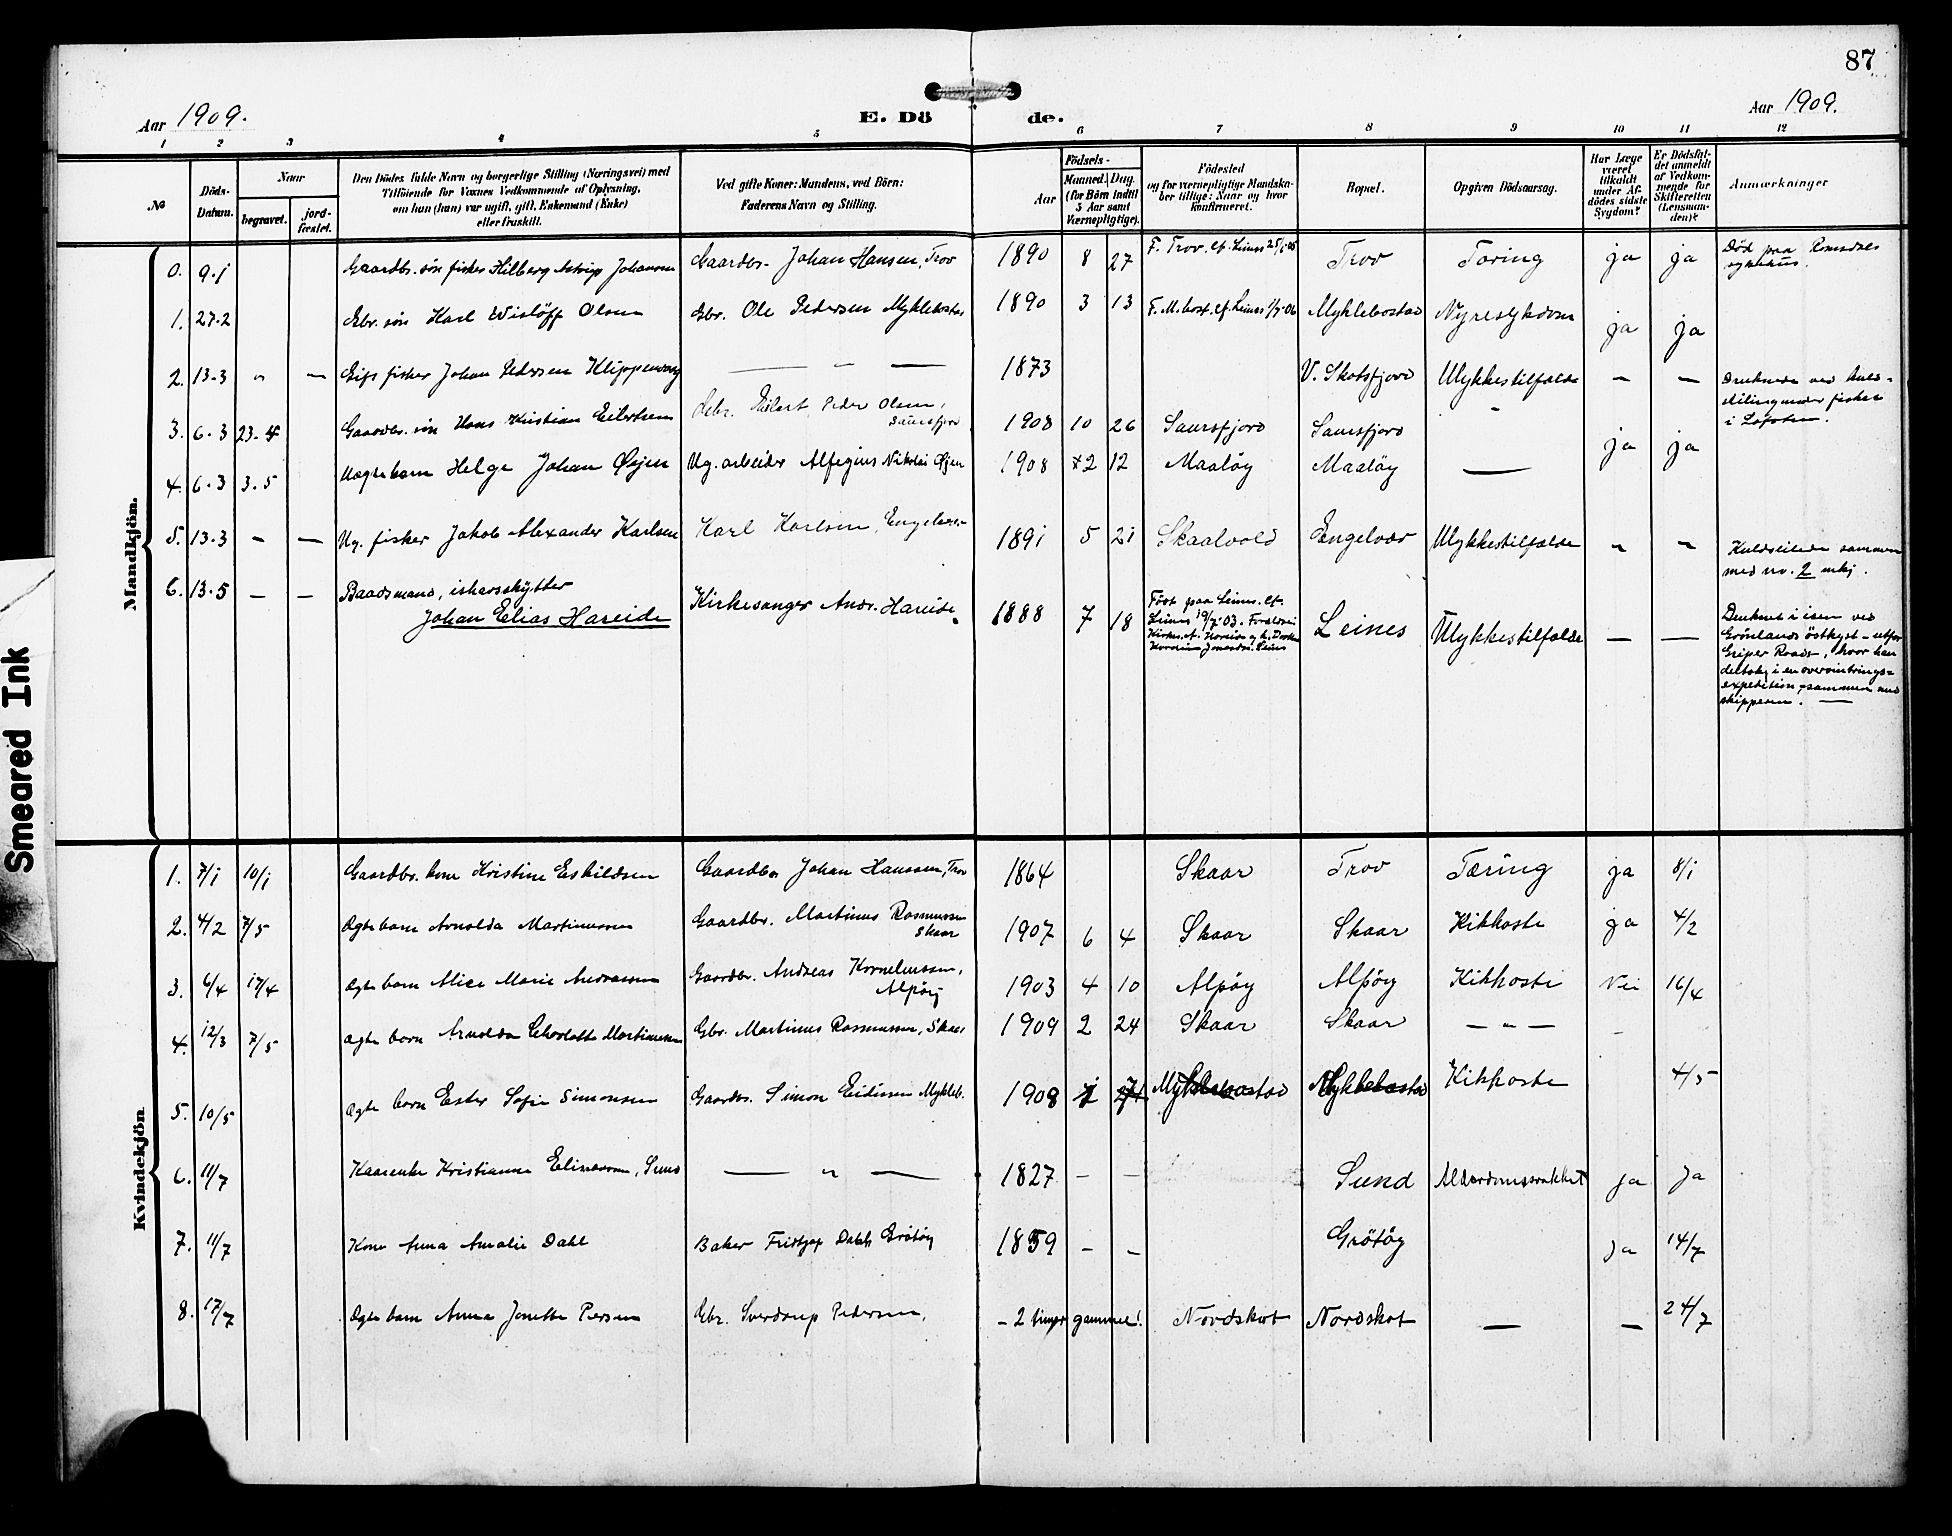 87
Aar 1909.
E. Dö de.
Aar 1909.
1 2 3 4 5 6 7 8 9 10 11 12
No.
Döds-Datum.
Naar
begravet.
jord-fæstet.
Den Dödes fulde Navn og borgerlige Stilling (Næringsvei) med
Tilföiende for Voxnes Vedkommende af Oplysning,
om han (hun) var ugift, gift, Enkemand (Enke)
eller fraskilt.
Ved gifte Koner: Mandens, ved Börn:
Faderens Navn og Stilling.
Födsels-
Aar
Maaned. Dag.
(for Börn indtil
5 Aar samt
Værnepligtige).
Födested
og for værnepligtige Mandska-
ber tillige: Naar og hvor
konfirmeret.
Bopæl.
Opgiven Dödsaarsag.
Har Læge
været
tilkaldt
under Af-
dödes sidste
Sygdom?
Er Dödsfal-
det anmeldt
af Vedkom-
mende for
Skifteretten
(Lensman-
den)?
Anmærkninger
Mandkjön.
0. 9.1 Gaardbr. sön fisker Hilberg Astrup Johansen Gaardbr. Johan Hansen, Trov 1890 8 27 F. Trov. cf. Leines 25/6 05 Trov Tæring ja ja Död paa Romsdals
sykehus.
1. 27.2 Gbr. sön Karl Wislöff Olsen Gbr. Ole Pedersen Myklebostad 1890 3 13 F. M.bost. cf. Leines 1/7 06 Myklebostad Nyresykdom ja ja
2. 13.3 " — Gift fisker Johan Pedersen Klippenvaag — " — 1873 V. Skotsfjord Ulykkestilfælde — — Druknede ved kuld-
seiling under fisket
i Lofoten.
3. 6.3 23.4 Gaardbr. sön Hans Kristian Eilertsen Gbr. Eilert Peder Olsen,
Saursfjord 1908 10 26 Saursfjord Saursfjord " ja ja
4. 6.3 3.5 Uægte barn Helge Johan Öyen Ug. arbeider Alfegius Nikolai Öyen 1908 12 12 Maalöy Maalöy —
5. 13.3 — — Ug. fisker Jakob Alexander Karlsen Karl Karlsen, Engelvær 1891 5 21 Skaalvold Engelvær Ulykkestilfælde " " Kuldseilede sammen
med no. 2 mkj.
6. 13.5 — — Baadsmand, ishavsskytter
Johan Elias Hareide Kirkesanger Andr. Hareide. 1888 7 18 Födt paa Leines. cf.
Leines 19/7 03. Forældre:
Kirkes. A. Hareide og h. Dorthea
Leines Leines Ulykkestilfælde — — Druknet i isen ved
Grönlands östkyst - utfor
Griper Roads, hvor han
deltok i en overvintrings-
expedition, sammen med
skipperen. —
Kvindekjön
1. 7/1 10/1 Gaardbr. kone Kristine Eskildsen Gaardbr. Johan Hanssen, Trov 1864 Skaar Trov Tæring ja 8/1
2. 4/2 7/5 Ægte barn Arnolda Martinussen Gaardbr. Martinus Rasmussen
Skaar 1907 6 4 Skaar Skaar Kikhoste ja 4/2
3. 6/4 17/4 Ægte barn Alice Marie Andreassen Gaardbr. Andreas Korneliussen,
Alpöy 1903 4 10 Alpöy Alpöy Kikhoste Nei 16/4
4. 12/3 7/5 Ægte barn Arnolda Charlotte Martinussen Gbr. Martinus Rasmussen, Skaar 1909 2 24 Skaar Skaar — " — -
5. 10/5 Ægte barn Ester Sofie Simonsen Gaardbr. Simon Eidissen Mykleb. 1908 Myklebostad Myklebostad Kikhoste 4/5
6. 11/7 Kaarenke Kristianna Eliasdatter, Sund — " — 1827 — — Sund Alderdomssvakhet ja ja
7. 11/7 Kone Anna Amalie Dahl Baker Fridtjof Dahl Grötöy 1859 — — Grötöy ja 14/7
8. 17/7 Ægte barn Anna Jonette Persen Gbr. Sverdrup Pedersen, — 2 timer gammel! Nordskot Nordskot — — 24/7
Smeared Ink